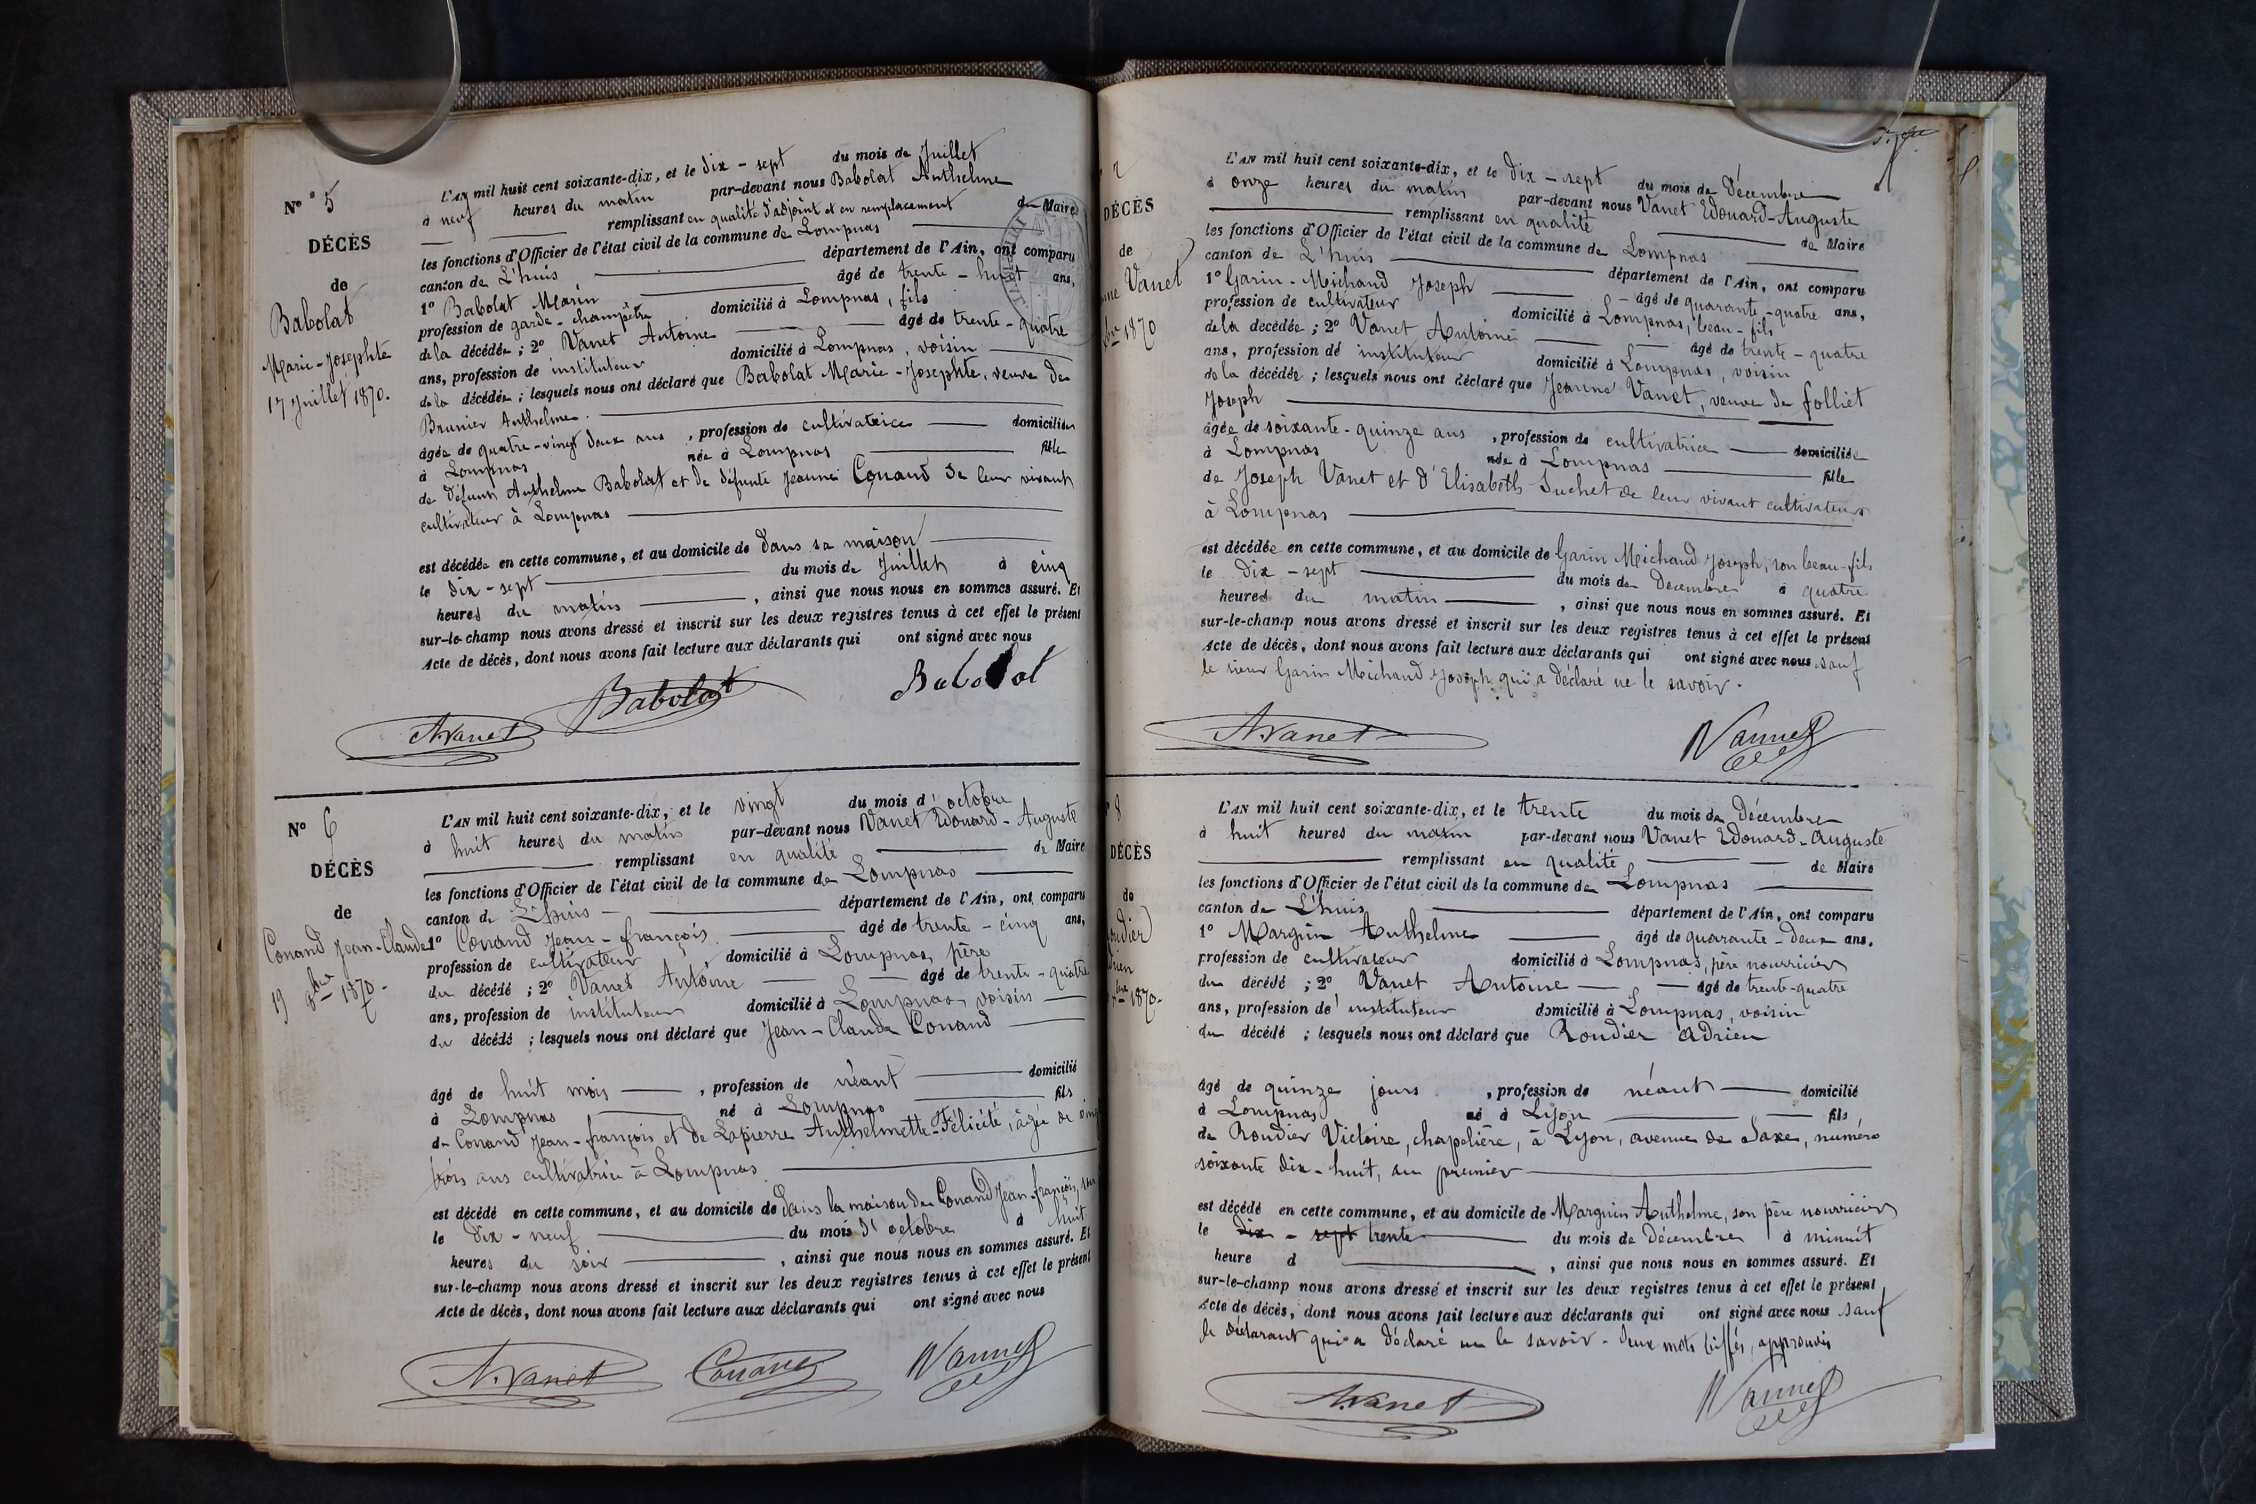 N° 5
DÉCÈS
de
Babolat
Marie-Josephte
17 Juillet 1870.
L'AN mil huit cent soixante-dix, et le dix-sept du mois de Juillet
à neuf heures du matin par-devant nous Babolat Anthelme
remplissant en qualité d'adjoint et en remplacement du Maire
les fonctions d'Officier de l'état civil de la commune de Lompnas
canton de L'huis département de l'Ain, ont comparu
1° Babolat Marin âgé de trente-huit ans,
profession de garde-champêtre domicilié à Lompnas, fils
de la décédée ; 2° Vanet Antoine âgé de trente-quatre
ans, profession de instituteur domicilié à Lompnas, voisin
de la décédée ; lesquels nous ont déclaré que Babolat Marie-Josephte, veuve de
Brunier Anthelme.
âgée de quatre-vingt deux ans, profession de cultivatrice domiciliée
à Lompnas née à Lompnas fille
de défunt Anthelme Babolat et de défunte Jeanne Conand de leur vivant
cultivateur à Lompnas
est décédée en cette commune, et au domicile de dans sa maison
le dix-sept du mois de Juillet à cinq
heures du matin, ainsi que nous nous en sommes assuré. Et
sur-le-champ nous avons dressé et inscrit sur les deux registres tenus à cet effet le présent
Acte de décès, dont nous avons fait lecture aux déclarants qui ont signé avec nous
Babolat
Babolat
A. Vanet
N° 6
DÉCÈS
de
Conand Jean-Claude
19 8bre 1870.
L'AN mil huit cent soixante-dix, et le vingt du mois d'octobre
à huit heures du matin par-devant nous Vanet Edouard-Auguste
remplissant en qualité de Maire
les fonctions d'Officier de l'état civil de la commune de Lompnas
canton de L'huis département de l'Ain, ont comparu
1° Conand Jean-françois âgé de trente-cinq ans,
profession de cultivateur domicilié à Lompnas, père
du décédé ; 2° Vanet Antoine âgé de trente-quatre
ans, profession de instituteur domicilié à Lompnas, voisin
du décédé ; lesquels nous ont déclaré que Jean-Claude Conand
âgé de huit mois, profession de néant domicilié
à Lompnas né à Lompnas fils
de Conand Jean-françois et de Lapierre Anthelmette-Félicité, âgée de vingt
trois ans cultivatrice à Lompnas
est décédé en cette commune, et au domicile de dans la maison de Conand Jean-françois, son
le dix-neuf du mois d'octobre à huit
heures du soir, ainsi que nous nous en sommes assuré. Et
sur-le-champ nous avons dressé et inscrit sur les deux registres tenus à cet effet le présent
Acte de décès, dont nous avons fait lecture aux déclarants qui ont signé avec nous
A. Vanet Conand Vannet
DÉCÈS
de
Vanet
bre 1870
L'AN mil huit cent soixante-dix, et le dix-sept du mois de Décembre
à onze heures du matin par-devant nous Vanet Edouard-Auguste
remplissant en qualité de Maire
les fonctions d'Officier de l'état civil de la commune de Lompnas
canton de L'huis département de l'Ain, ont comparu
1° Garin-Michaud Joseph âgé de quarante-quatre ans,
profession de cultivateur domicilié à Lompnas, beau-fils
de la décédée ; 2° Vanet Antoine âgé de trente-quatre
ans, profession de instituteur domicilié à Lompnas, voisin
de la décédée ; lesquels nous ont déclaré que Jeanne Vanet, veuve de folliet
Joseph
âgée de soixante-quinze ans, profession de cultivatrice domiciliée
à Lompnas née à Lompnas fille
de Joseph Vanet et d'Elisabeth Suchet de leur vivant cultivateurs
à Lompnas
est décédée en cette commune, et au domicile de Garin Michaud Joseph, son beau-fils
le dix-sept du mois de Décembre à quatre
heures du matin, ainsi que nous nous en sommes assuré. Et
sur-le-champ nous avons dressé et inscrit sur les deux registres tenus à cet effet le présent
Acte de décès, dont nous avons fait lecture aux déclarants qui ont signé avec nous sauf
le sieur Garin Michaud Joseph qui a déclaré ne le savoir.
A. Vanet Vannet
8
DÉCÈS
de
1870.
L'AN mil huit cent soixante-dix, et le trente du mois de Décembre
à huit heures du matin par-devant nous Vanet Edouard-Auguste
remplissant en qualité de Maire
les fonctions d'Officier de l'état civil de la commune de Lompnas
canton de L'huis département de l'Ain, ont comparu
1° Marguin Anthelme âgé de quarante-deux ans,
profession de cultivateur domicilié à Lompnas, père nourricier
du décédé ; 2° Vanet Antoine âgé de trente-quatre
ans, profession de instituteur domicilié à Lompnas, voisin
du décédé ; lesquels nous ont déclaré que Roudier Adrien
âgé de quinze jours, profession de néant domicilié
à Lompnas né à Lyon fils
de Roudier Victoire, chapelière, à Lyon, avenue de Saxe, numéro
soixante dix-huit, au premier
est décédé en cette commune, et au domicile de Marguin Anthelme, son père nourricier
le dix-sept trente du mois de Décembre à minuit
heure d, ainsi que nous nous en sommes assuré. Et
sur-le-champ nous avons dressé et inscrit sur les deux registres tenus à cet effet le présent
Acte de décès, dont nous avons fait lecture aux déclarants qui ont signé avec nous sauf
le déclarant qui a déclaré ne le savoir. deux mots biffés, approuvés
A. Vanet Vannet